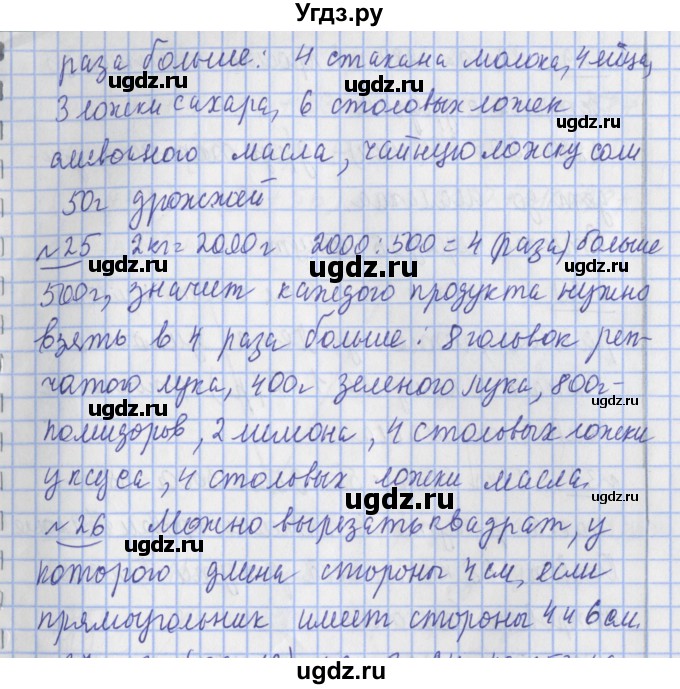 Угдз.ру
раза больше: 4 стакана молока, 4 яйца,
3 ложки сахара, 6 столовых ложек
оливочного масла, чайную ложку соли
50г дрожжей
№25 2кг = 2000г 2000:500 = 4 (раза) больше
500г, значит каждого продукта нужно
взять в 4 раза больше: 8 головок реп-
чатого лука, 400г зеленого лука, 800г-
помидоров, 2 лимона, 4 столовых ложки
уксуса, 4 столовых ложки масла.
№26 Можно вырезать квадрат, у
которого длина стороны 4 см, если
прямоугольник имеет стороны 4 и 6 см.
ugdz.ru
ugdz.ru
ugdz.ru
ugdz.ru
ugdz.ru
ugdz.ru
ugdz.ru
ugdz.ru
ugdz.ru
ugdz.ru
ugdz.ru
ugdz.ru
ugdz.ru
ugdz.ru